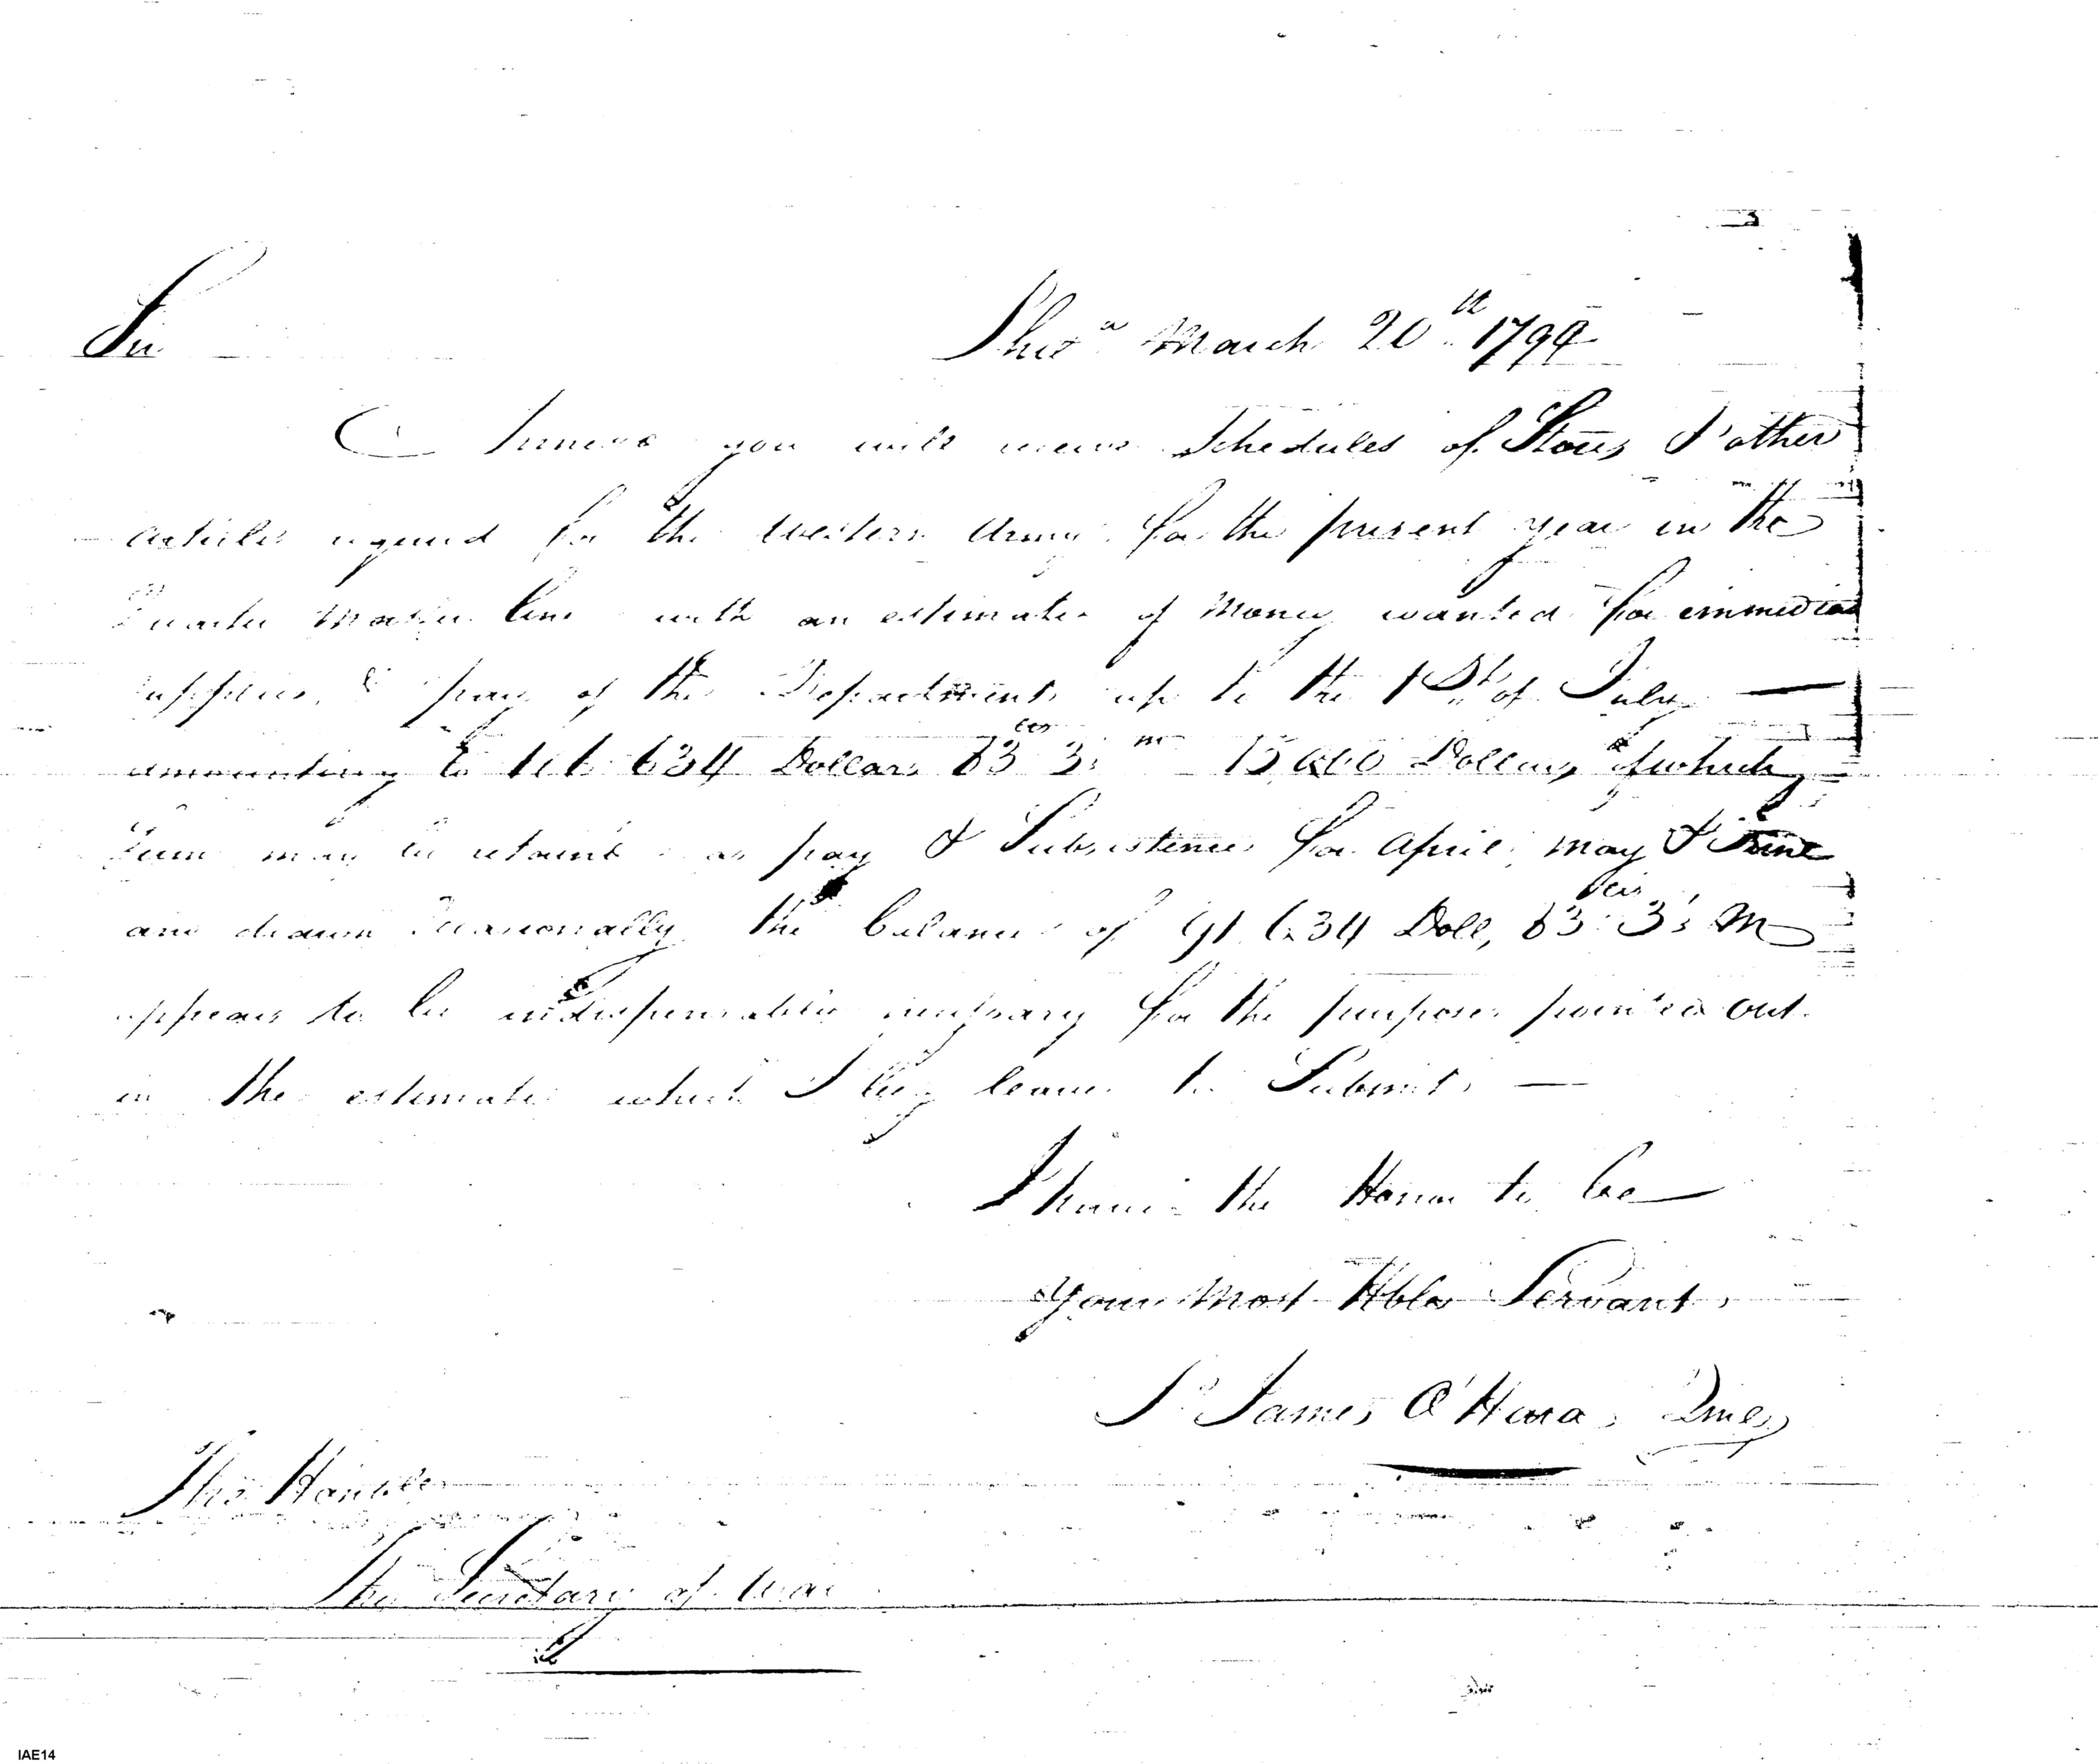 Sir
Phila March 20th 1794
Annexd you will receive Schedules of Stores & other
articles required for the Western Army for the present year in the
Quarter Master line with an estimate of Money wanted for immediate
supplies, & pay of the Department up to the 1st of July —
amounting to 634 Dollars 83 3 Dollars of which
Sum may be retaind as pay & Subsistence for April, May & June
and drawn the balance of 91 634 Doll, 83 3 M
appears to be indispensably necessary for the purposes pointed out
in the estimate which I beg leave to Submit —
I have the Honor to be
Your most Hble Servant
S James O'Hara QMG
The Honble
The Secretary of War
IAE14